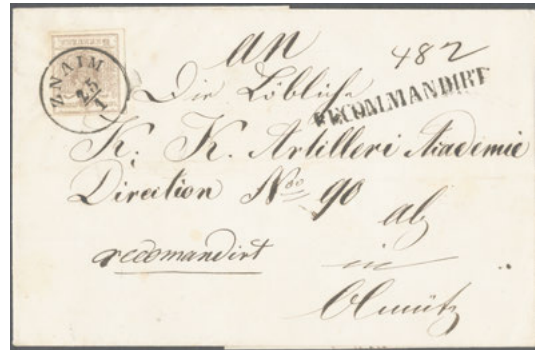 an
482
Die Löbliche
RECOMMANDIRT
ZNAIM
25
1
K. K. Artilleri Academie
Direction No 90
ab
recomandirt
in
Olmütz